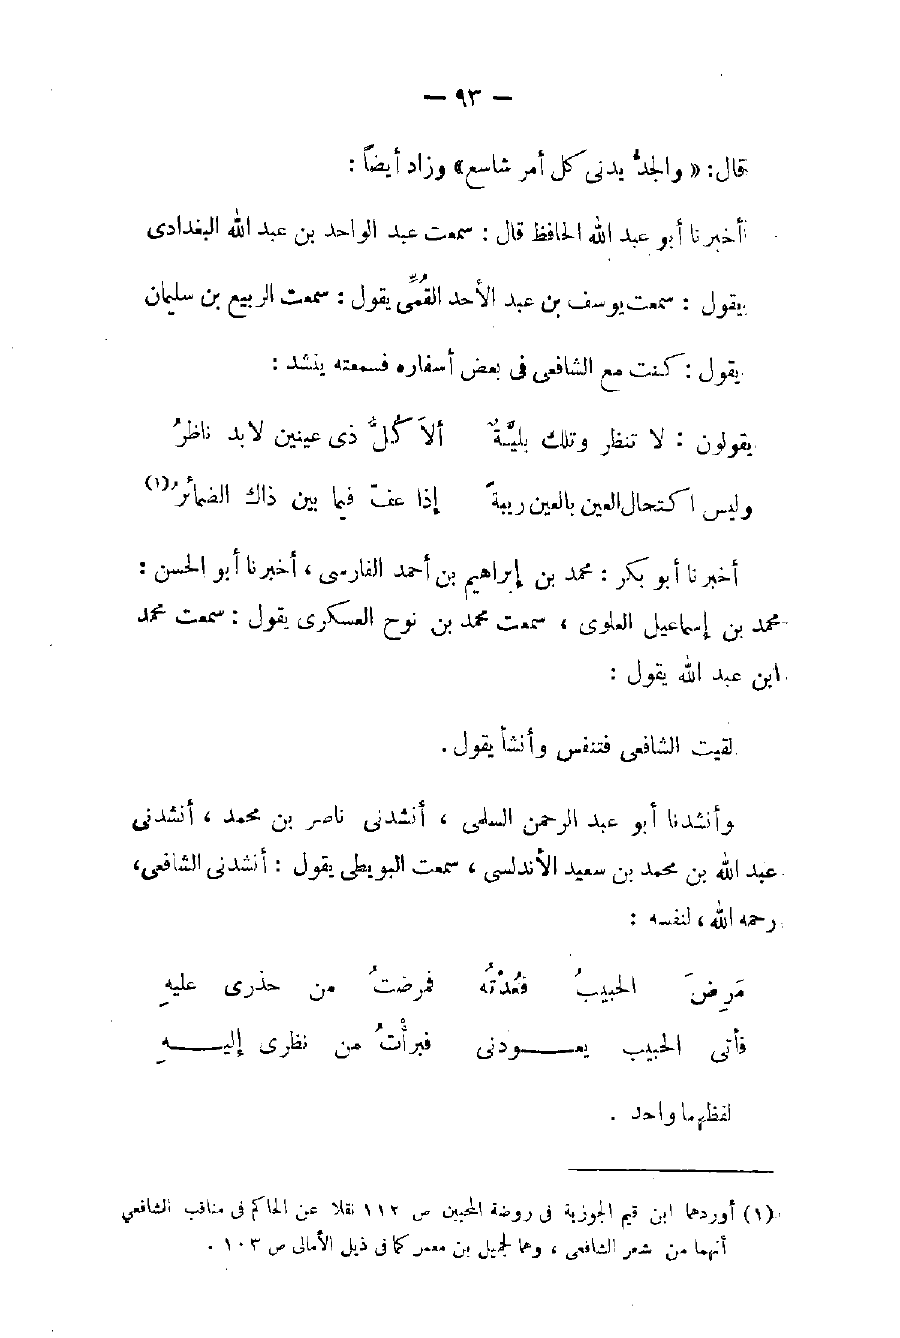 — ٩٣ —
قال: « والجدُّ يدنى كل أمر شاسع» وزاد أيضاً :
أخبرنا أبو عبد الله الحافظ قال : سمعت عبد الواحد بن عبد الله البغدادى
يقول : سمعت يوسف بن عبد الأحد القُمِّى يقول : سمعت الربيع بن سليمان
يقول : كنت مع الشافعى فى بعض أسفاره فسمعته ينشد :
يقولون : لا تنظر وتلك بليَّةٌ ألاَ كُلُّ ذى عينين لابد ناظرُ
وليس اكتحال العين بالعين ريبةً إذا عفّ فيما بين ذاك الضمائرُ(١)
أخبرنا أبو بكر : محمد بن إبراهيم بن أحمد الفارسى ، أخبرنا أبو الحسن :
محمد بن إسماعيل العلوى ، سمعت محمد بن نوح العسكرى يقول : سمعت محمد
ابن عبد الله يقول :
لقيت الشافعى فتنفس وأنشأ يقول .
وأنشدنا أبو عبد الرحمن السلمى ، أنشدنى ناصر بن محمد ، أنشدنى
عبد الله بن محمد بن سعيد الأندلسى ، سمعت البويطى يقول : أنشدنى الشافعى،
رحمه الله ، لنفسه :
مَرِضَ الحبيبُ فعُدْتُه فمرضتُ من حذرى عليهِ
فأتى الحبيب يعــودنى فبرأتُ من نظرى إليــهِ
لفظهما واحد .
(١) أوردهما ابن قيم الجوزية فى روضة المحبين ص ١١٢ نقلا عن الحاكم فى مناقب الشافعي
أنهما من شعر الشافعى ، وهما لجميل بن معمر كما فى ذيل الأمالى ص ١٠٣ .